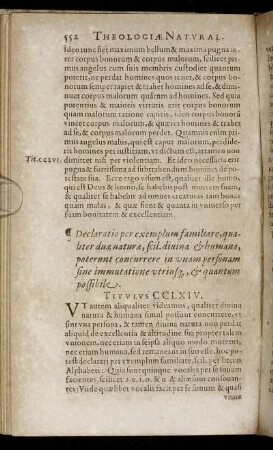 552 THEOLOGIÆ NATVRAL.
ideo tunc fiet maximum bellum & maxima pugna in-
ter corpus bonorum & corpus malorum, scilicet pri-
mus angelus cum suis membris custodiet quantum
potest, ne perdat homines quos tenet, & corpus bo-
norum semper rapiet & trahet homines ad se, & di-
minuet corpus malorum quasi in ad homines. Sed quia
potentius & maioris virtutis erit corpus bonorum
quàm malorum ratione capitis, ideo corpus bonorũ
vincet corpus malorum, & quæret homines & trahet
ad se, & corpus malorum perdet. Quamuis enim pri-
mus angelus malus, qui est caput malorum, perdide-
rit homines per iustitiam, vt dictum est, attamen non
TIT. CCLVI. dimittet nisi per violentiam. Et ideo necessaria erit
pugna & fortissima ad subtrahendum homines de po-
testate sua. Ecce ergo visum est, qualiter ille homo,
qui est Deus & homo, se habebit post mortem suam,
& qualiter se habebit ad omnes creaturas tam bonas
quàm malas, & quæ fient & quanta in vniuerso per
suam bonitatem & excellentiam.
¶ Declaratio per exemplum familiare, qua-
liter duæ naturæ, scil. diuina & humana,
poterunt concurrere in vnam personam
sine immutatione vtriusq́;, & quantum
possibile.
TITVLVS CCLXIV.
VT autem aliqualiter videamus, qualiter diuina
natura & humana simul possunt concurrere, vt
sint vna persona, & tamen diuina natura non perdat
aliquid de excellentia & altitudine sui propter talem
vnionem, nec etiam in seipsa aliquo modo mutetur,
nec etiam humana, sed remaneat in suo esse, hoc potest
declarari per exemplum familiare, scil. per literas
Alphabeti: Quia sunt quinque vocales per se sonum
facientes, scilicet a. e. i. o. & u & aliæ sunt consonan-
tes: Vnde quælibet vocalis facit per se sonum & quasi